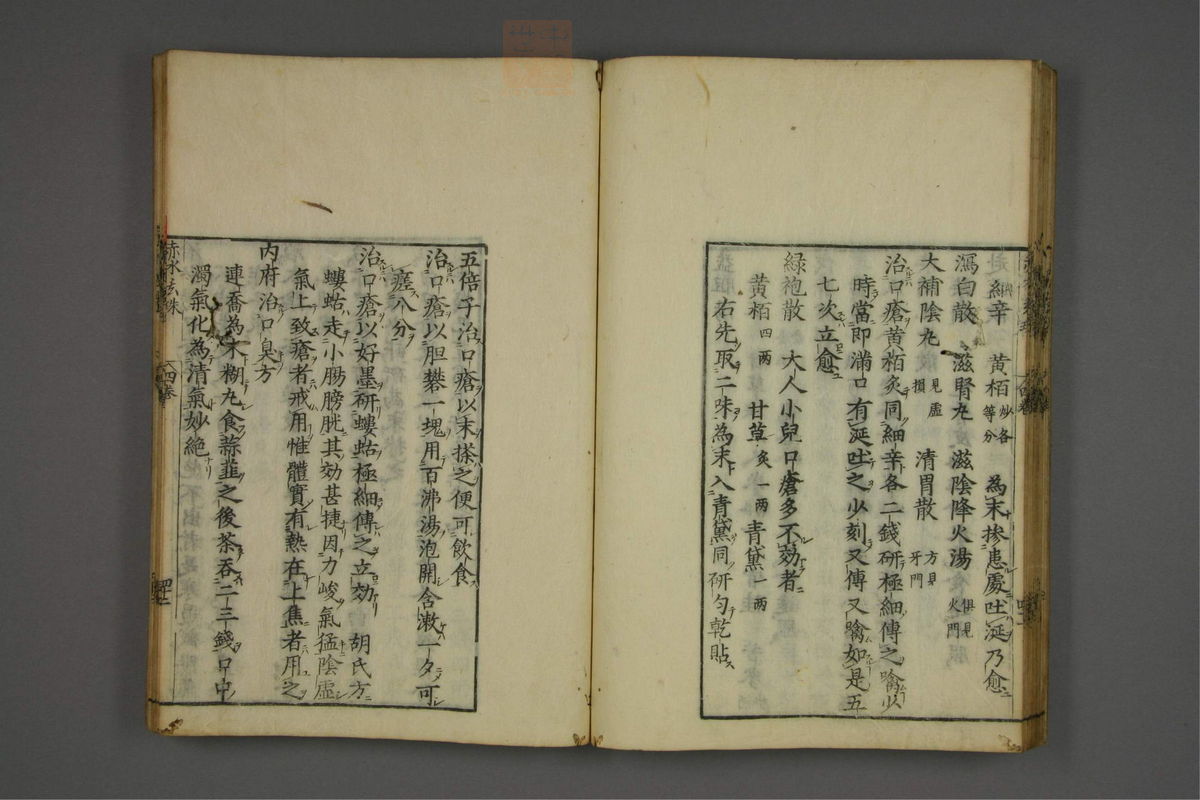 赴細辛 黃栢炒各等分 為末摻患處吐涎乃愈
瀉白散 滋腎丸 滋陰降火湯俱見火門
大補陰丸見虛損 清胃散方見牙門
治口瘡黃栢炙同細辛各二錢研極細傳之噙少
時當即滿口有涎吐之少刻又傳又噙如是五
七次立愈
綠袍散 大人小兒口瘡多不効者
黃栢四兩 甘草炙一兩 青黛一兩
右先取二味為末入青黛同研勻乾貼
五倍子治口瘡以末搽之便可飲食
治口瘡以胆礬一塊用百沸湯泡開含漱一夕可
瘥八分
治口瘡以好墨研螻蛄極細傳之立効 胡氏方
螻蛄走小腸膀胱其効甚捷因力峻氣猛陰虛
氣上致瘡者戒用惟體實有熱在上焦者用之
內府治口臭方
連喬為末糊丸食蒜韮之後茶吞二三錢口中
濁氣化為清氣妙絕
赤水玄珠 四卷